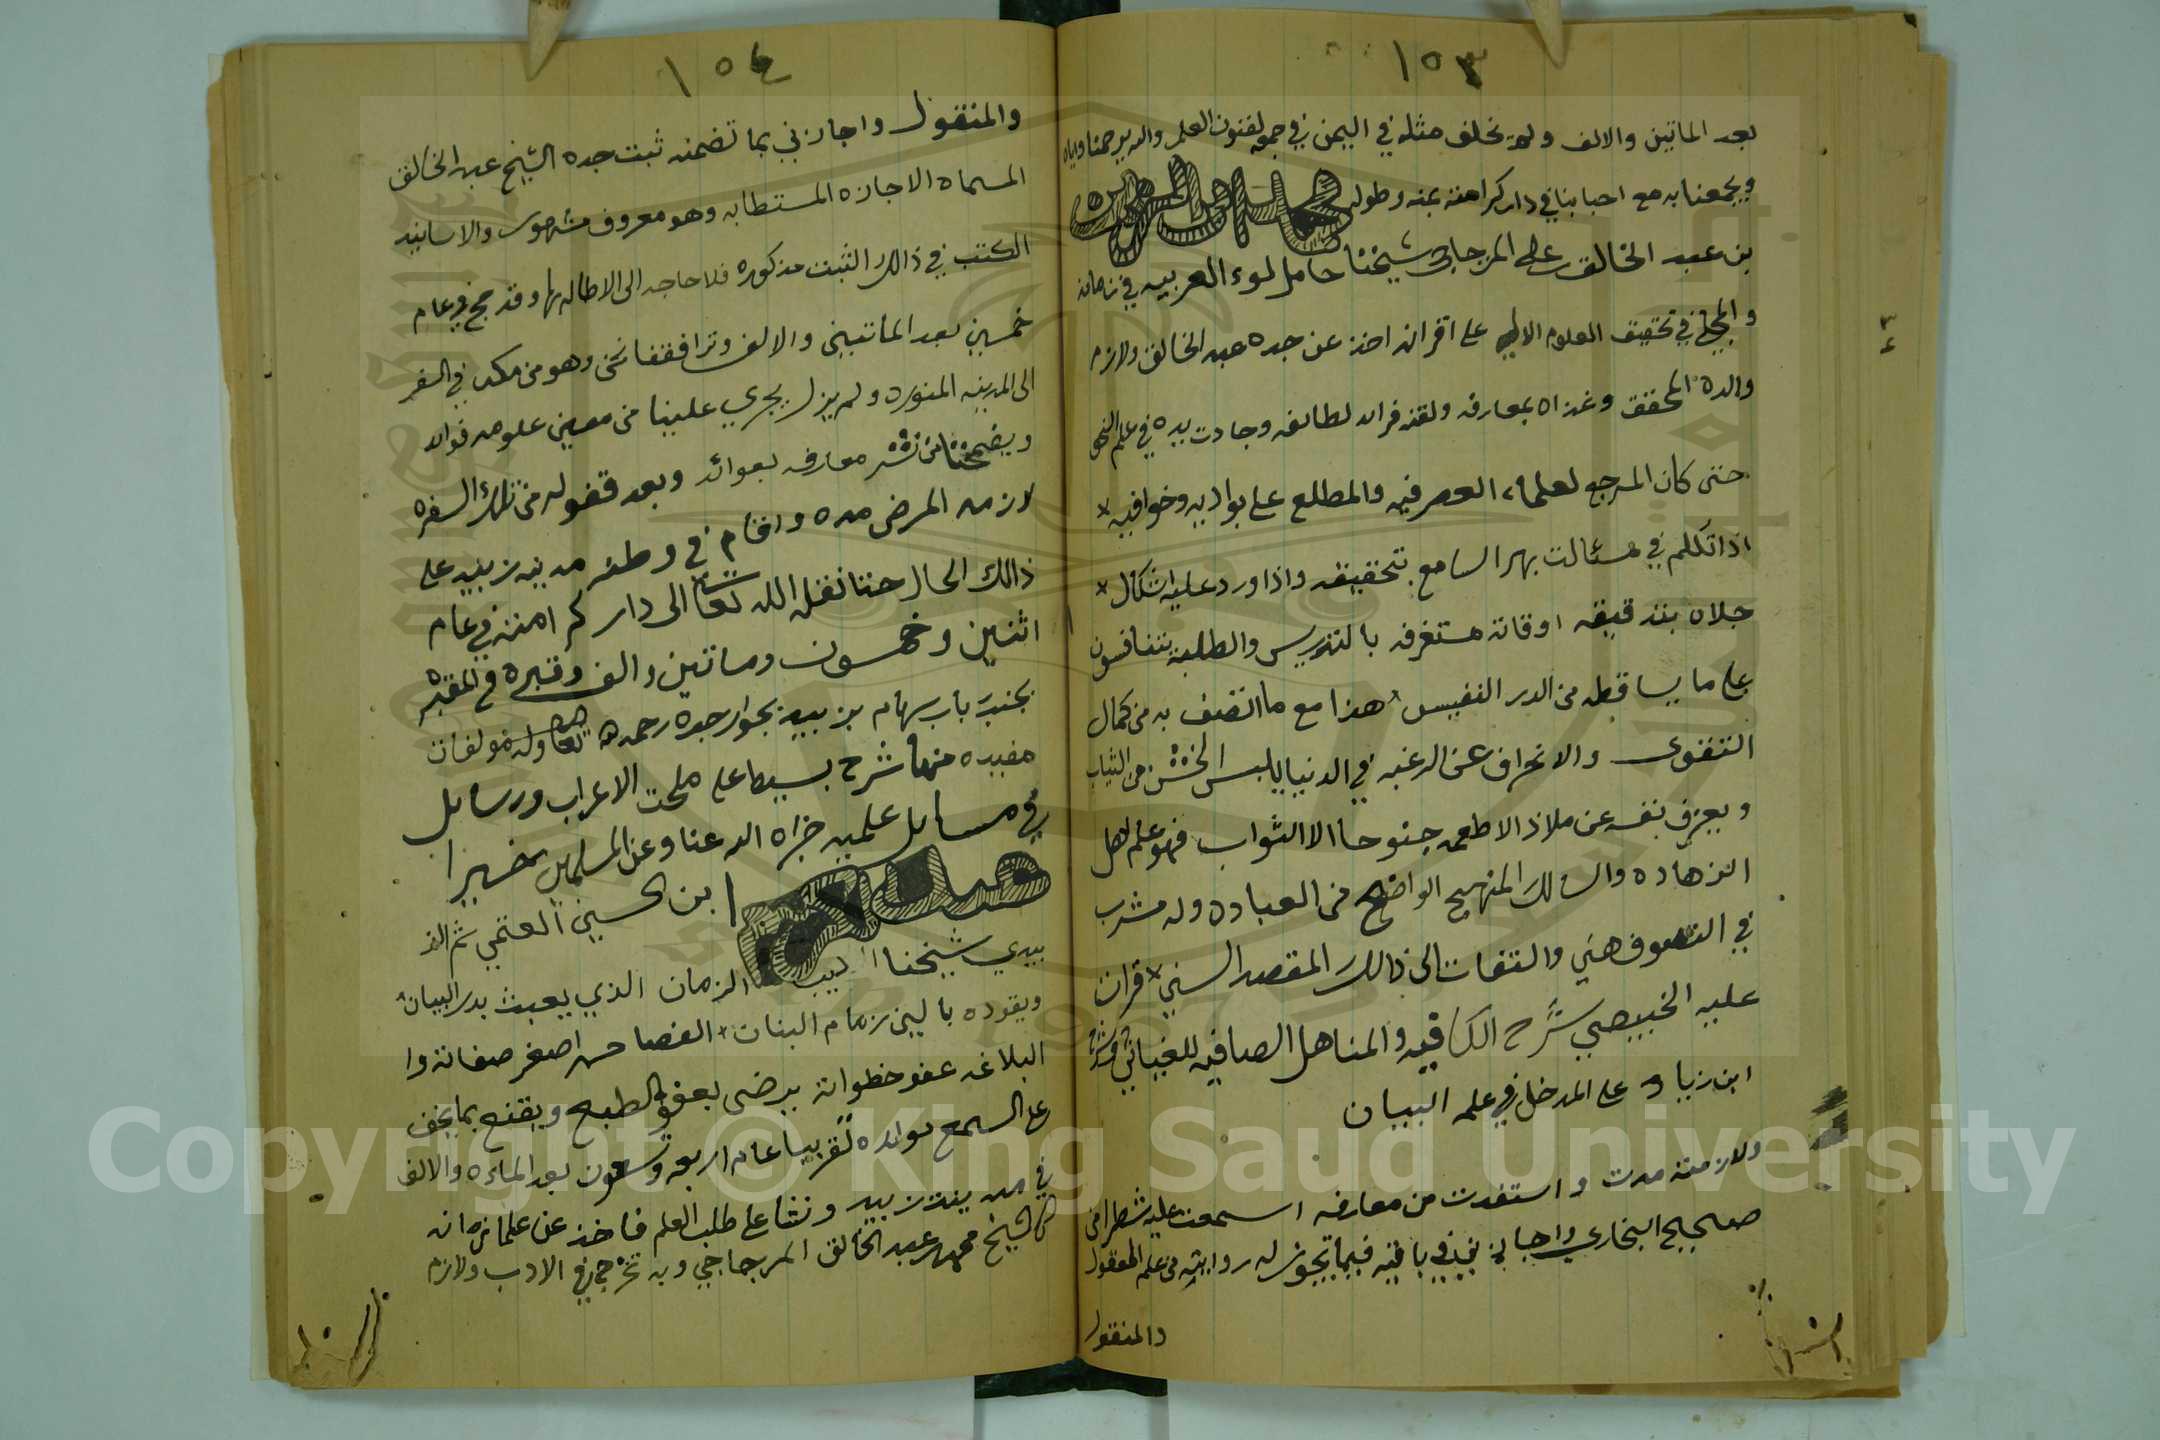 ١٥٣
بعد الماتين والالف ولم يخلف مثله في اليمن في جمع لفنون العلم والله يرحمنا واياه
ويجمعنا به مع احبابنا في دار كرامته بمنه وطوله
بن عبد الخالق على المزجاجي شيخنا حامل لوء العربيه في زمانه
والمجلي في تحقيق العلوم الاليه على اقرانه اخذ عن جده عبد الخالق ولازم
والده المحقق وغذاه بمعارفه ولقنه فرائد لطائفه وجادت يده في علم النحو
حتى كان المرجع لعلماء العصر فيه والمطلع على بواديه وخوافيه *
اذا تكلم في مسئالت بهر السامع بتحقيقه واذا اورد عليه اشكال *
جلاه بتدقيقه اوقاته مستغرقه بالتدريس والطلبة يتنافسون
على ما يساقطه من الدر النفيس هذا مع ما اتصف به من كمال
التقوى والانحراف عن الرغبه في الدنيا يلبس الخشن من الثياب
ويعزف بنفسه عن ملاذ الاطعمه جنوحا الا الثواب فهو علم اهل
الزهاده والسالك المنهيج الواضح من العباده وله مشرب
في التصوف هني والتفات الى ذالك المقصد السني * قرات
عليه الخبيصي شرح الكافيه والمناهل الصافيه للغياثي وشرح
ابن زياد على المدخل في علم البيان
ولازمته مدت واستفدت من معارفه اسمعت عليه شطرا من
صحيح البخاري واجازني في باقيه فيما تجوز له روايته من علم المعقول
والمنقول
١٥٤
والمنقول واجازني بما تضمنه ثبت جده الشيخ عبد الخالق
المسماه الاجازه المستطابه وهو معروف مشهور والاسانيد
الكتب في ذالك الثبت مذكوره فلا حاجه الى الاطاله بها وقد حج في عام
خمسين بعد الماتيين والالف وترافقفا نحن وهو من مكه في السفر
الى المدينه المنوره ولم يزل يجري علينا من معين علومه فوائد
ويضمخنا من نشر معارفه بعوائد وبعد قفوله من تلك السفره
لازمه المرض مده واقام في وطنه مدينه زبيد على
ذالك الحال حتا نقله الله تعالى الى دار كرامته في عام
اثنين وخمسون وماتين والف وقبره في المقبره
بجنب باب سهام بزبيد بجوار جده رحمه الله تعالى وله مولفات
مفيده منها شرح بسيط على ملحت الاعراب ورسايل
في مسايل علميه جزاه الله عنا وعن المسلمين خيرا
ابن الحسين العتمي ثم الز
بيدي شيخنا اديب الزمان الذي يعبث بدر البيان
ويقوده بالين زمام البنان * الفصاحه اصغر صفاته وا
البلاغه عفو خطواته يرضى بعفو الطبع ويقنع بما يخف
على السمع مولده تقريبا عام اربعه وتسعون بعد المائه والالف
في مدينة زبيد ونشا على طلب العلم فاخذ عن علما زمانه
كالشيخ محمد عبد الخالق المزجاجي وبه تخرج في الادب ولازم
Copyright © King Saud University